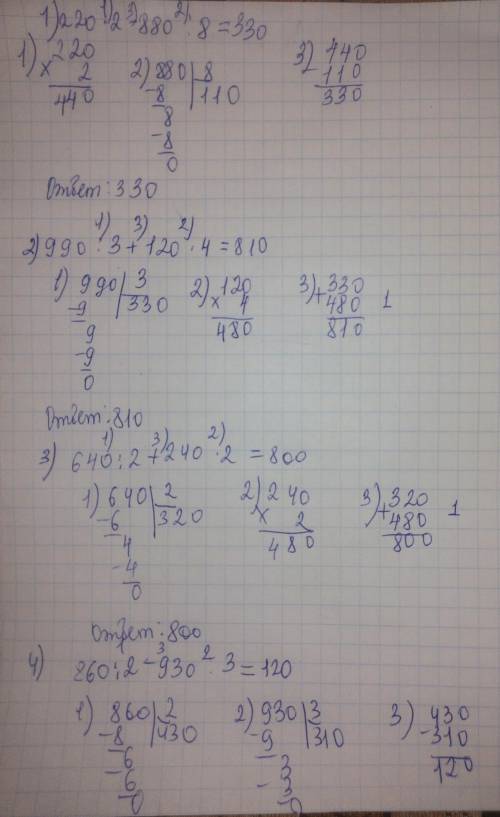 1) 220 · 2 - 880 : 8 = 330
1) 220 × 2 440
2) 880 8 110 -8 8 -8 0
3) 440 - 110 330
Ответ: 330
2) 990 : 3 + 120 · 4 = 810
1) 990 3 330 -9 9 -9 0
2) 120 × 4 480
3) + 330 480 810 1
Ответ: 810
3) 640 : 2 + 240 · 2 = 800
1) 640 2 320 -6 4 -4 0
2) 240 × 2 480
3) + 320 480 800 1
Ответ: 800
4) 860 : 2 - 930 : 3 = 120
1) 860 2 430 -8 6 -6 0
2) 930 3 310 -9 3 -3 0
3) 430 - 310 120